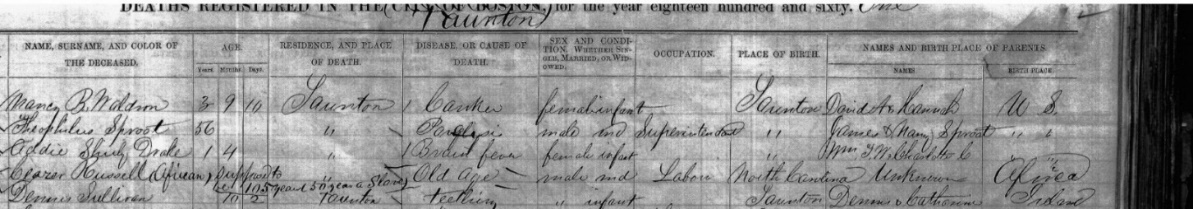 DEATHS REGISTERED IN THE CITY OF BOSTON, for the year eighteen hundred and sixty. One
Taunton
NAME, SURNAME, AND COLOR OF THE DECEASED. AGE. Years Months Days. RESIDENCE, AND PLACE OF DEATH. DISEASE, OR CAUSE OF DEATH. SEX AND CONDITION. WHETHER SINGLE, MARRIED, OR WIDOWED. OCCUPATION. PLACE OF BIRTH. NAMES AND BIRTH PLACE OF PARENTS. NAMES BIRTH PLACE.
Nancy B. Waldron 3 9 10 Taunton Canker female infant Taunton David & Hannah U S.
Theophilus Sproat 56 " Paralysis male md Superintendent " James & Mary Sproat " "
Addie Drake 1 4 " Brain fever female infant " Wm
Ceazer Russell (African) Suppos to Old age male md Labor North Carolina Unknown Africa
105 years 50 years a Slave
Dennis Sullivan 10 2 Taunton teething " infant Taunton Dennis & Catharine Ireland